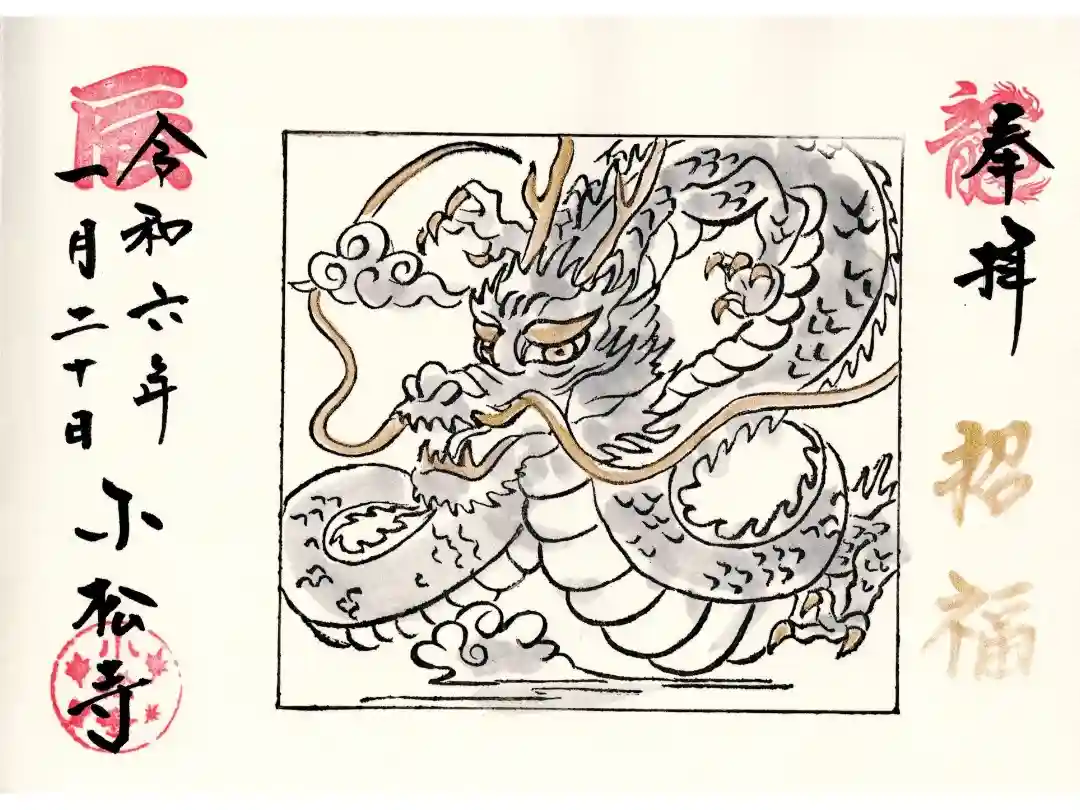 龍
奉拝
招福
辰
令和六年
一月二十日
小松寺